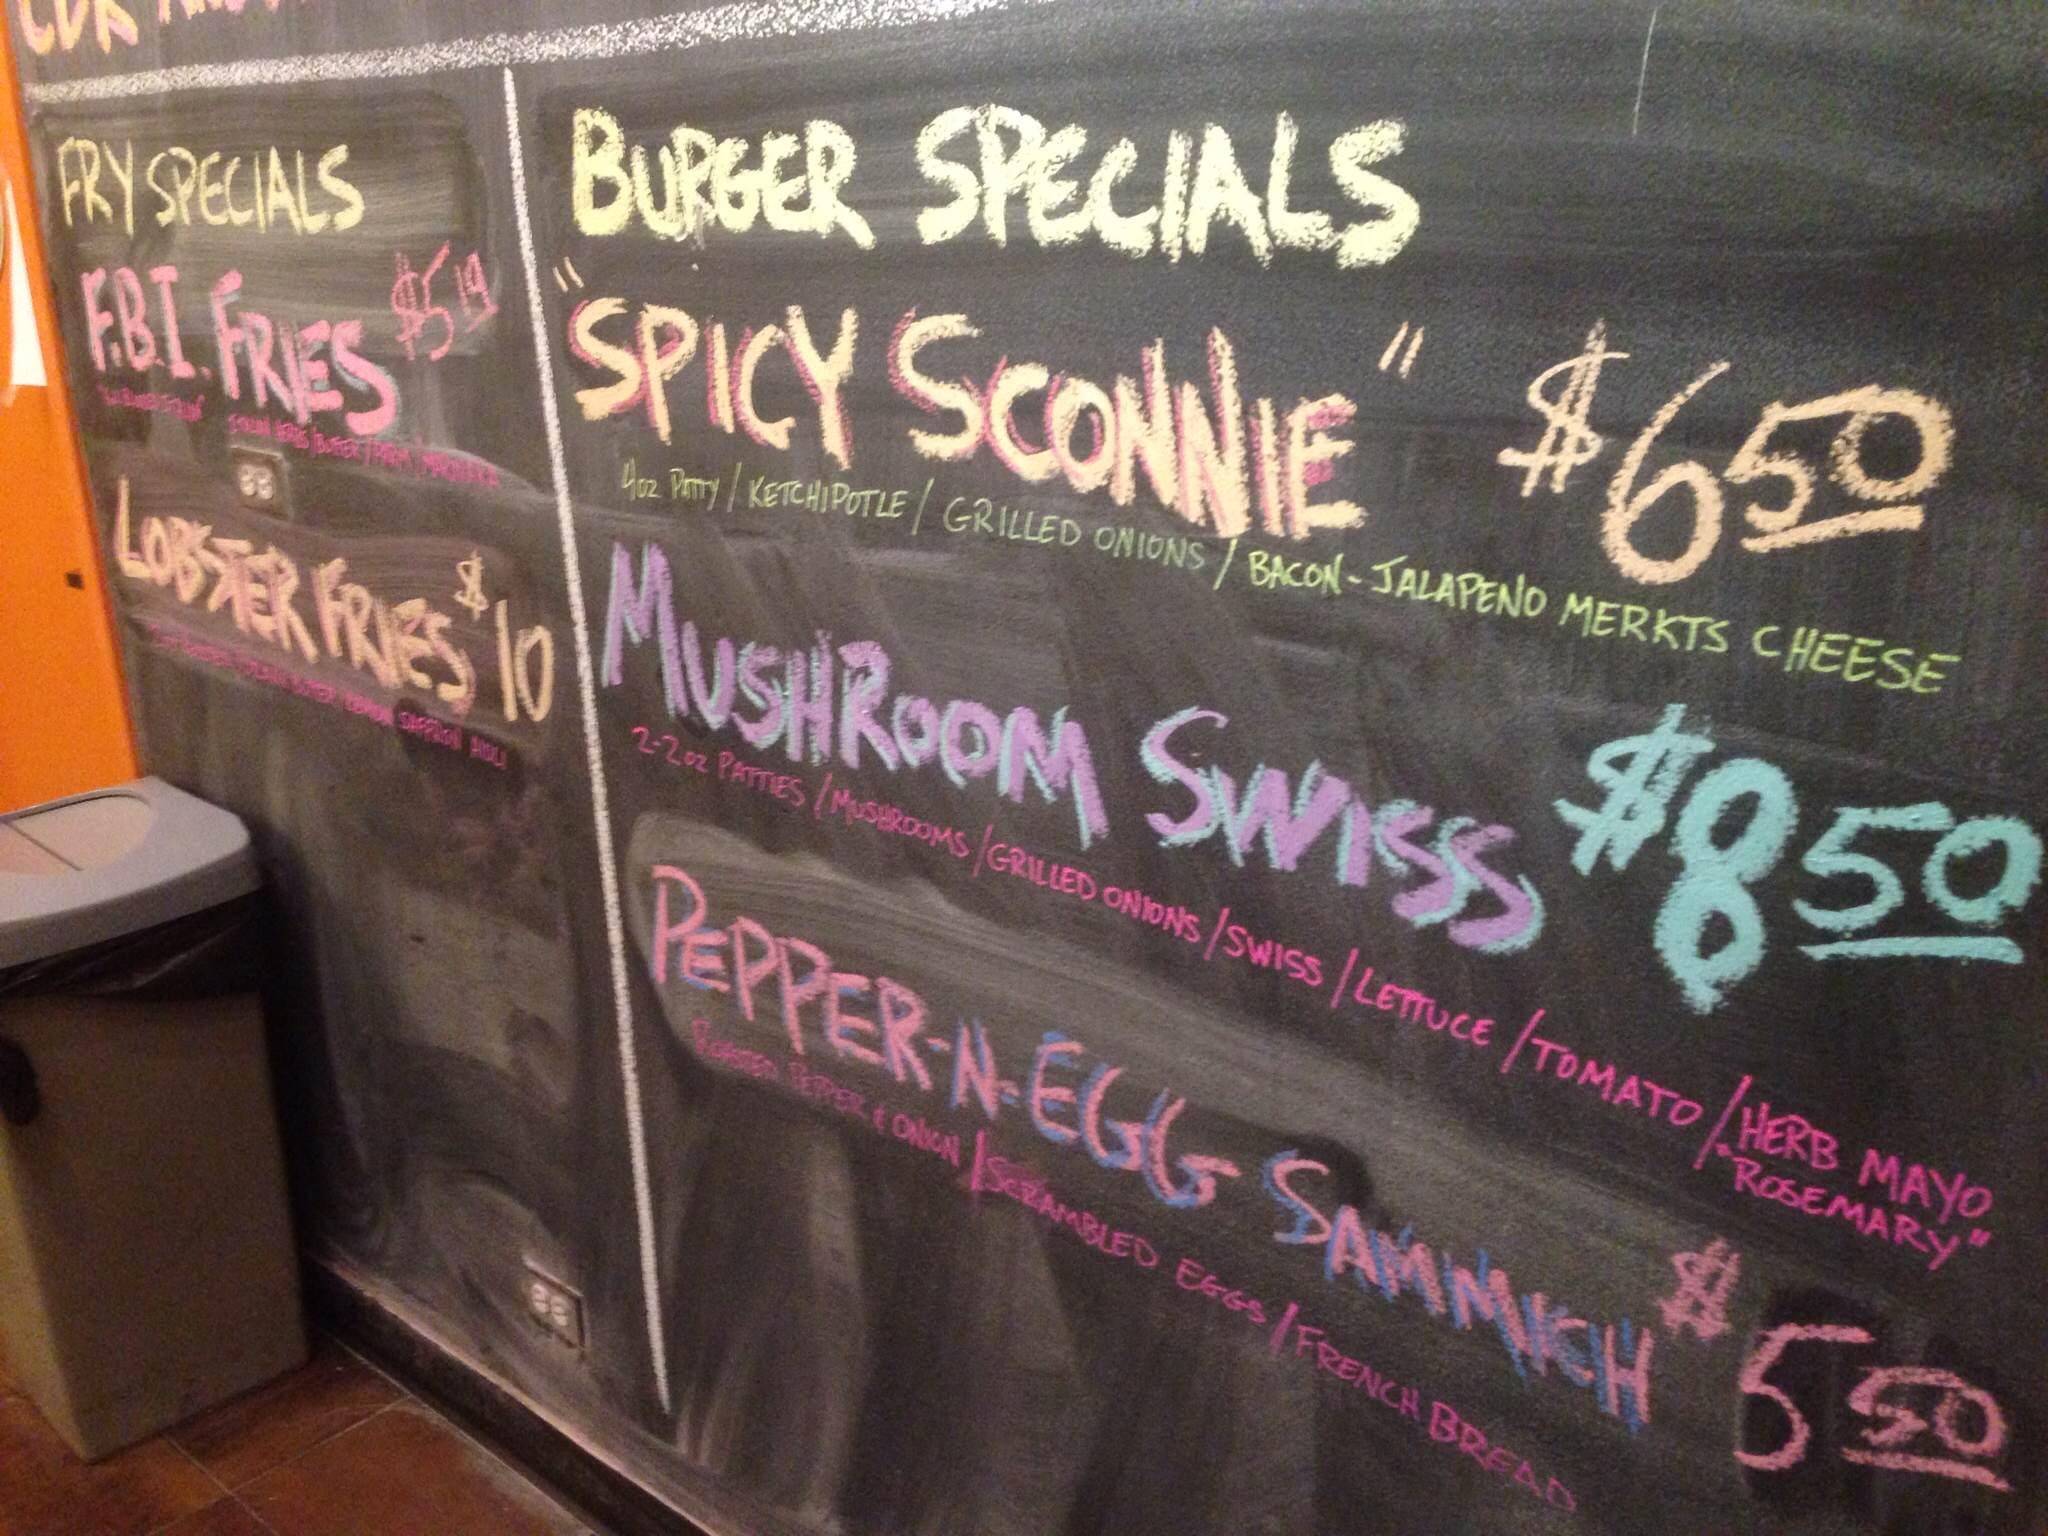 FRY SPECIALS
F.B.I. FRIES $5 19
LOBSTER FRIES $10
LEMON SAFFRON AIOLI
BURGER SPECIALS
"SPICY SCONNIE" $6 50
4oz PATTY / KETCHIPOTLE / GRILLED ONIONS / BACON-JALAPENO MERKTS CHEESE
MUSHROOM SWISS $8 50
2-2oz PATTIES / MUSHROOMS / GRILLED ONIONS / SWISS / LETTUCE / TOMATO / HERB MAYO
"ROSEMARY"
PEPPER-N-EGG SAMMICH $5 50
ROASTED PEPPER & ONION / SCRAMBLED EGGS / FRENCH BREAD